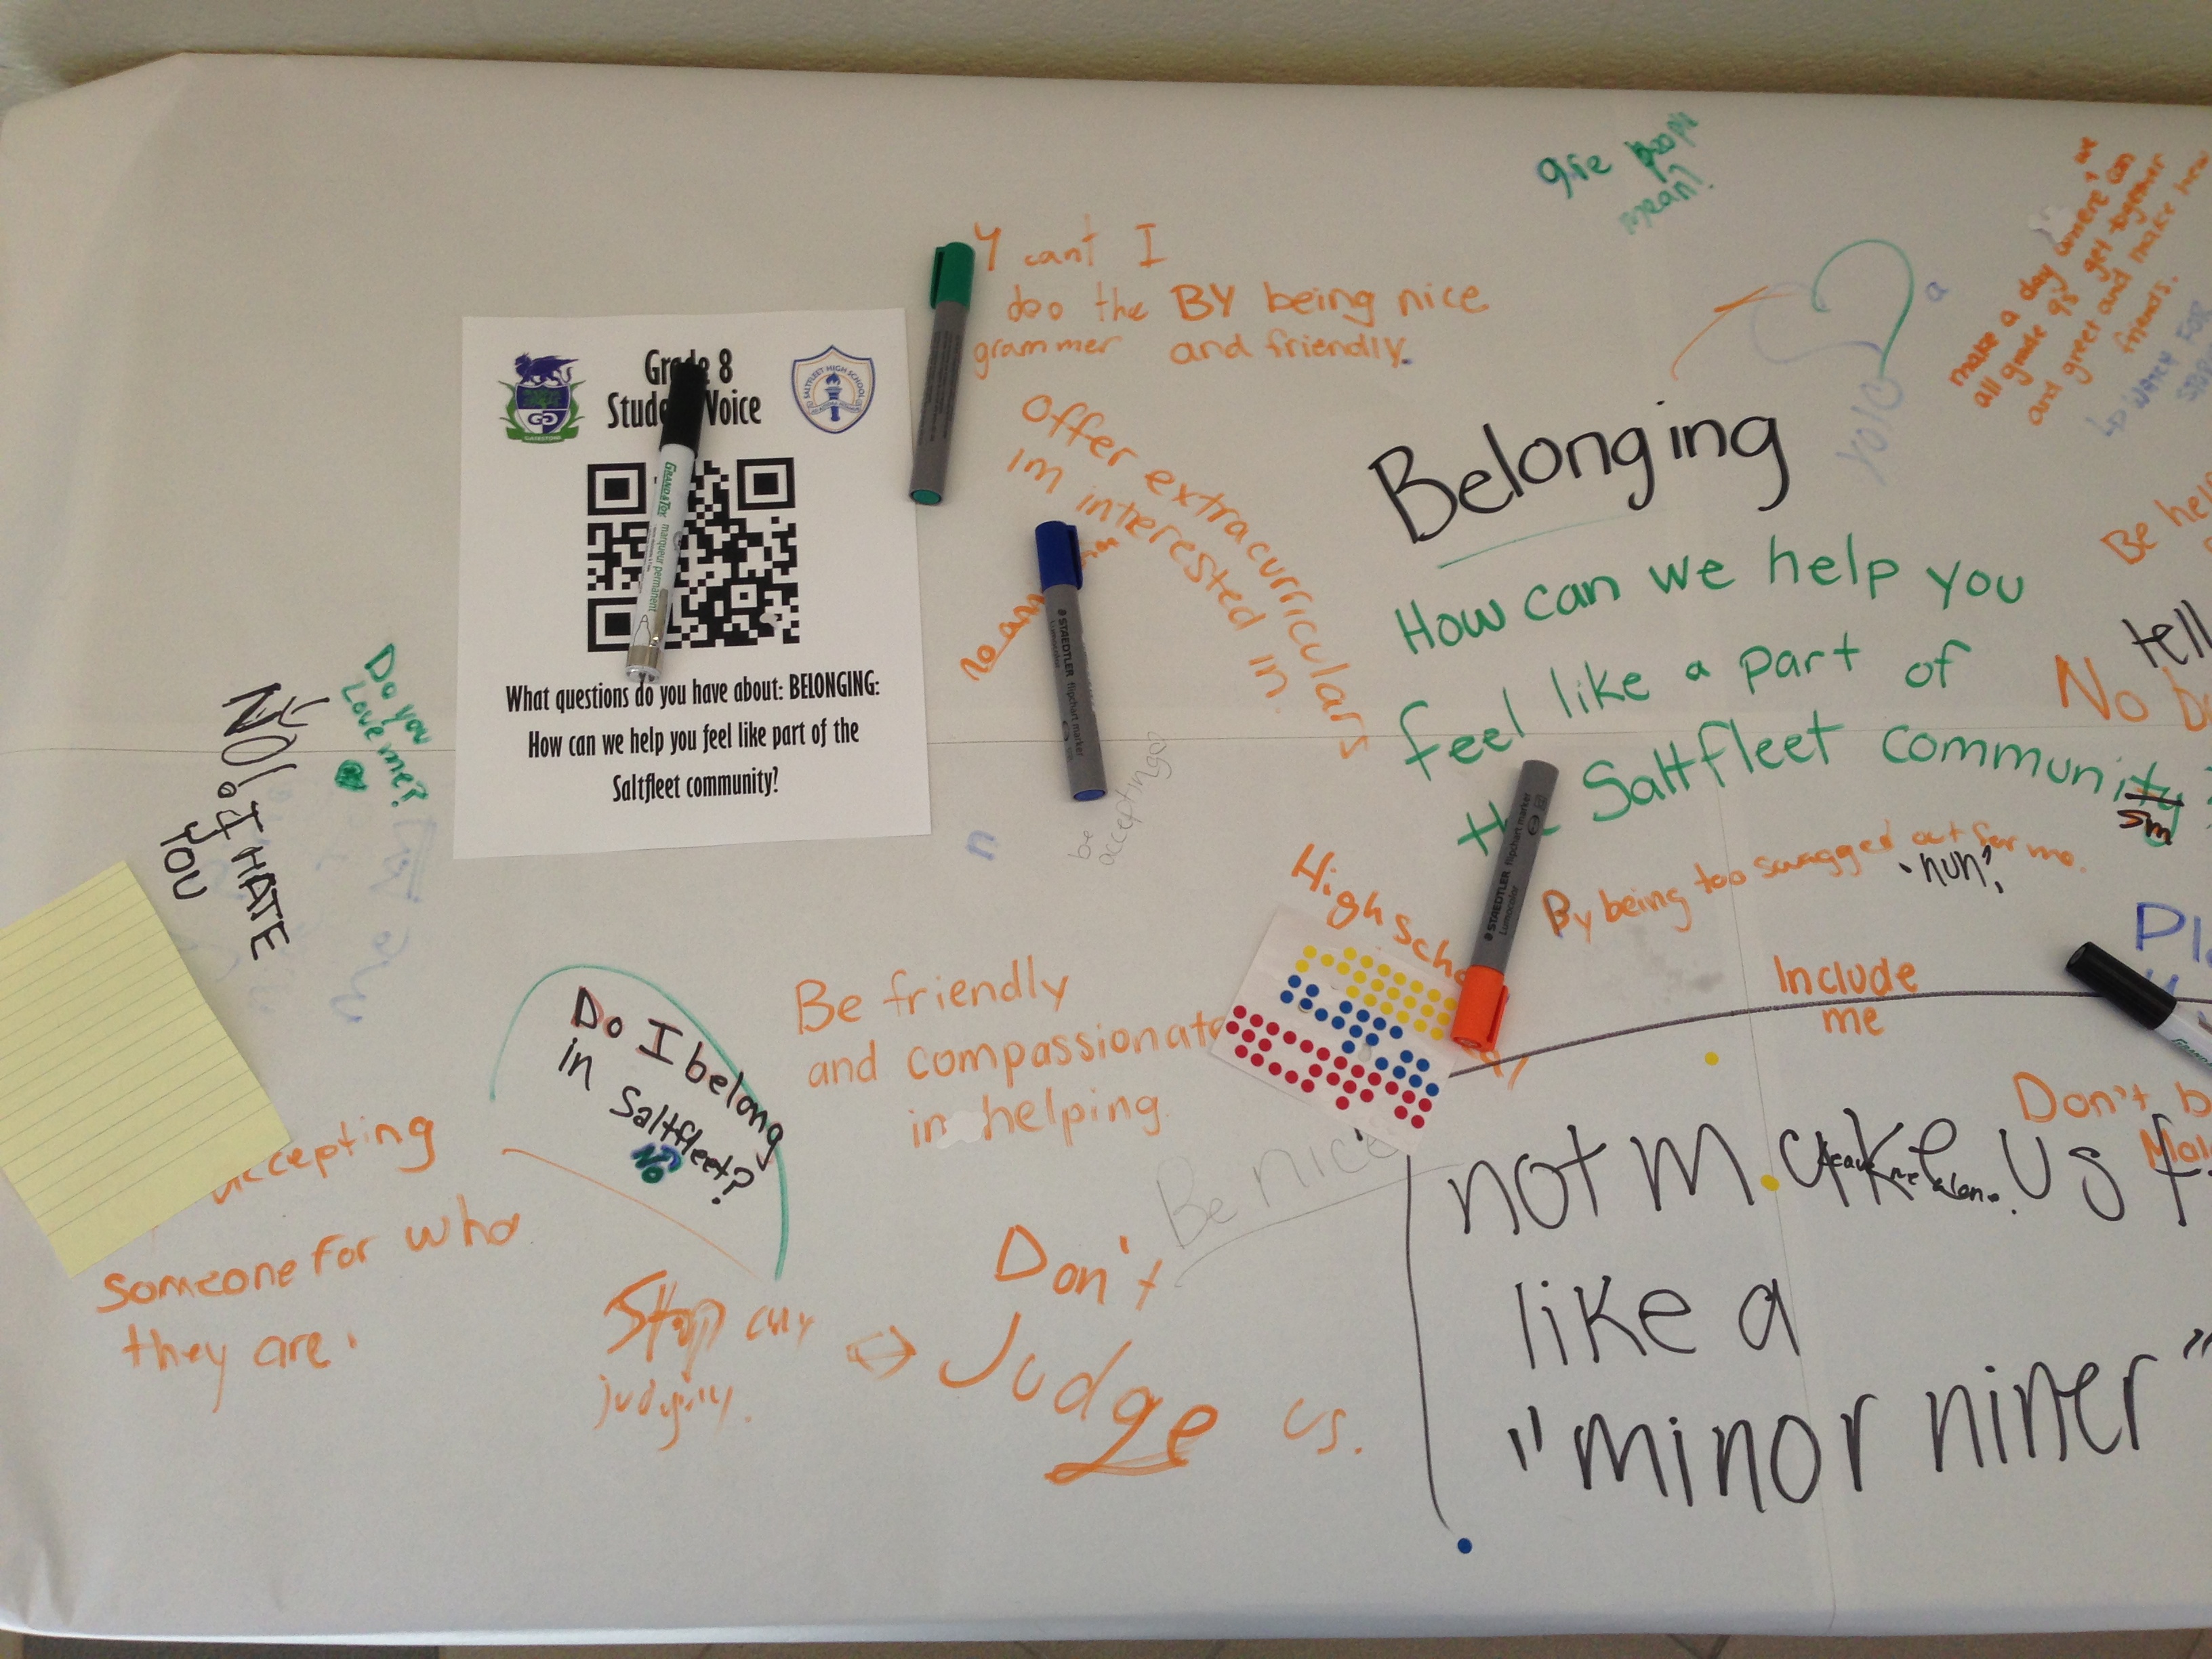 Grade 8
Student Voice
SALTFLEET HIGH SCHOOL
GRAND&TOY marqueur permanent
What questions do you have about: BELONGING:
How can we help you feel like part of the
Saltfleet community?
Y cant I
doo the
grammer
BY being nice
and friendly.
Offer extracurriculars
im interested in.
STAEDTLER flipchart marker
Lumocolor
be
accepting
give
mean?
make a day where we
all grade 9s get together
and greet and make new
friends.
YOLO
a
Belonging
How can we help you
feel like a part of
the Saltfleet community
Be
tell
No
sm
By being too swagged out for me.
"nun"
High
STAEDTLER flipchart marker
Lumocolor
Include
me
Do you
Love me?
NO! I HATE
YOU
n
Do I belong
in Saltfleet?
NO
Be friendly
and compassionate
in helping.
Be nice
accepting
someone for who
they are.
Stop
judging.
Don't
Judge us.
Don't
not make us
leave me alone.
like a
"minor niner"